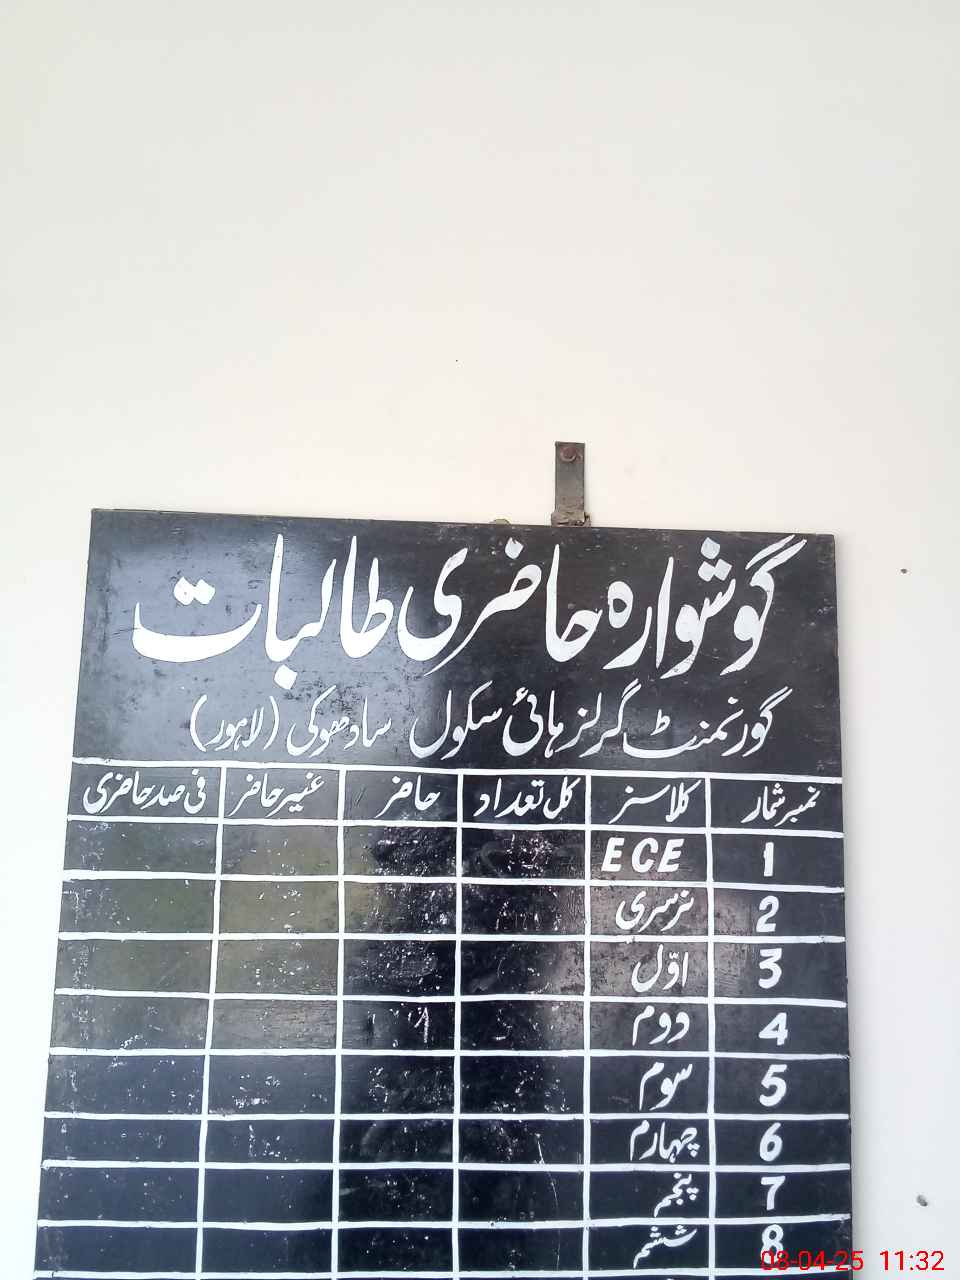 گوشوارہ حاضری طالبات
گورنمنٹ گرلز ہائی سکول سادھوکی (لاہور)
نمبر شمار کلاسز کل تعداد حاضر غیر حاضر فی صد حاضری
1 ECE
2 نرسری
3 اوّل
4 دوم
5 سوم
6 چہارم
7 پنجم
8 ششم
08-04-25 11:32